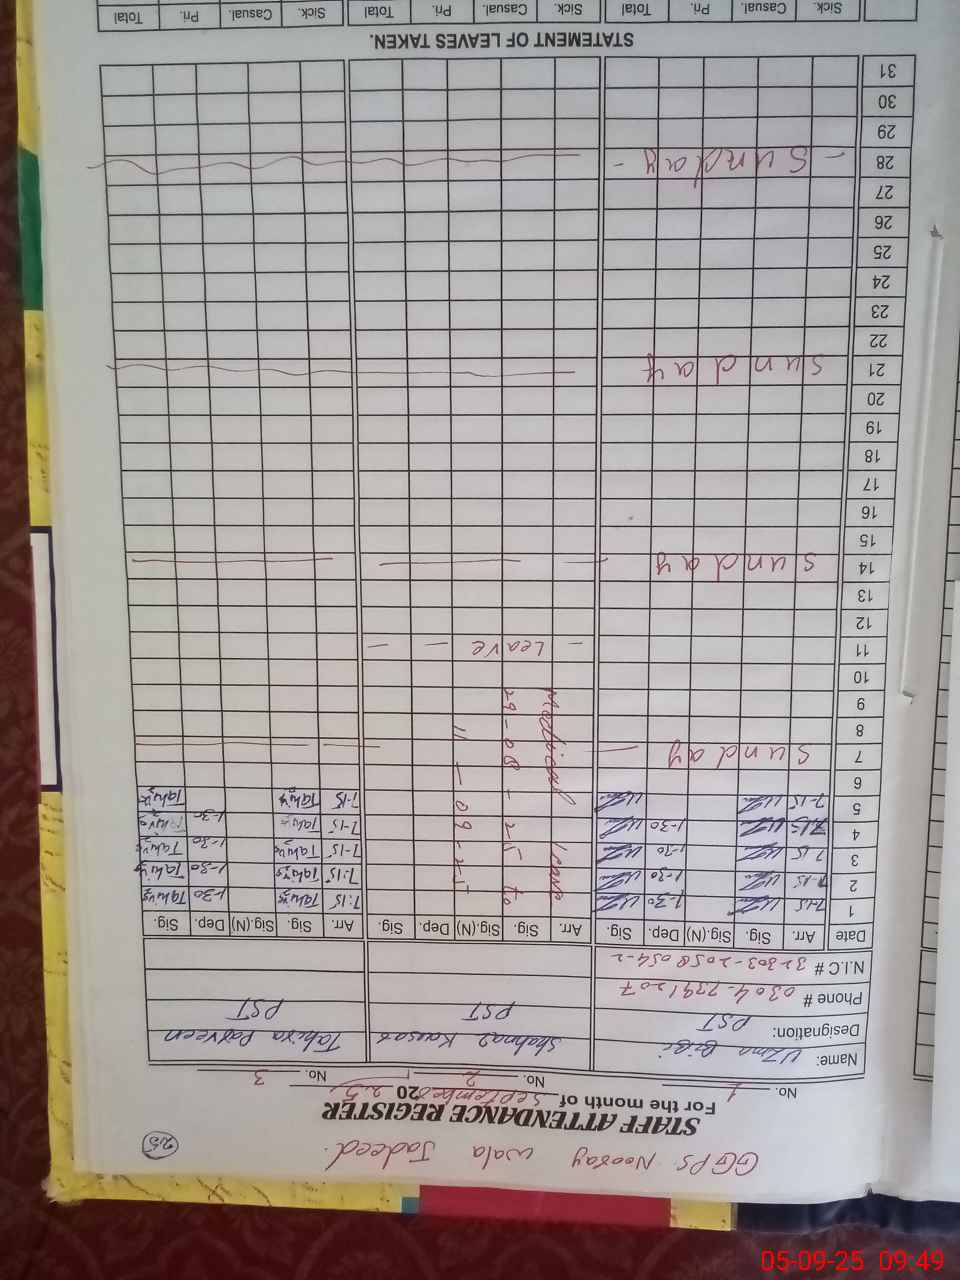 25
GGPS Nooray wala Jadeed.
STAFF ATTENDANCE REGISTER
For the month of September 2025
No. 1 No. 2 No. 3
Name: Uzma BiBi Shahnaz Kausar Tahira Parveen
Designation: PST PST PST
Phone # 0304-7391207
N.I.C # 32303-2058054-2
Date Arr. Sig. Sig.(N) Dep. Sig. Arr. Sig. Sig.(N) Dep. Sig. Arr. Sig. Sig.(N) Dep. Sig.
1 7-15 1-30 7:15 1-30
2 7-15 1-30 7:15 1-30
3 7 15 1-30 7-15 1-30
4 7:15 1-30 7-15 1-30
5 7-15 7-15
Medical Leave
29-08-25 to
11-09-25
6
7 Sunday
8
9
10
11 - Leave - -
12
13
14 Sunday
15
16
17
18
19
20
21 Sunday
22
23
24
25
26
27
28 - Sunday -
29
30
31
STATEMENT OF LEAVES TAKEN.
Sick. Casual. Pri. Total Sick. Casual. Pri. Total Sick. Casual. Pri. Total
05-09-25 09:49